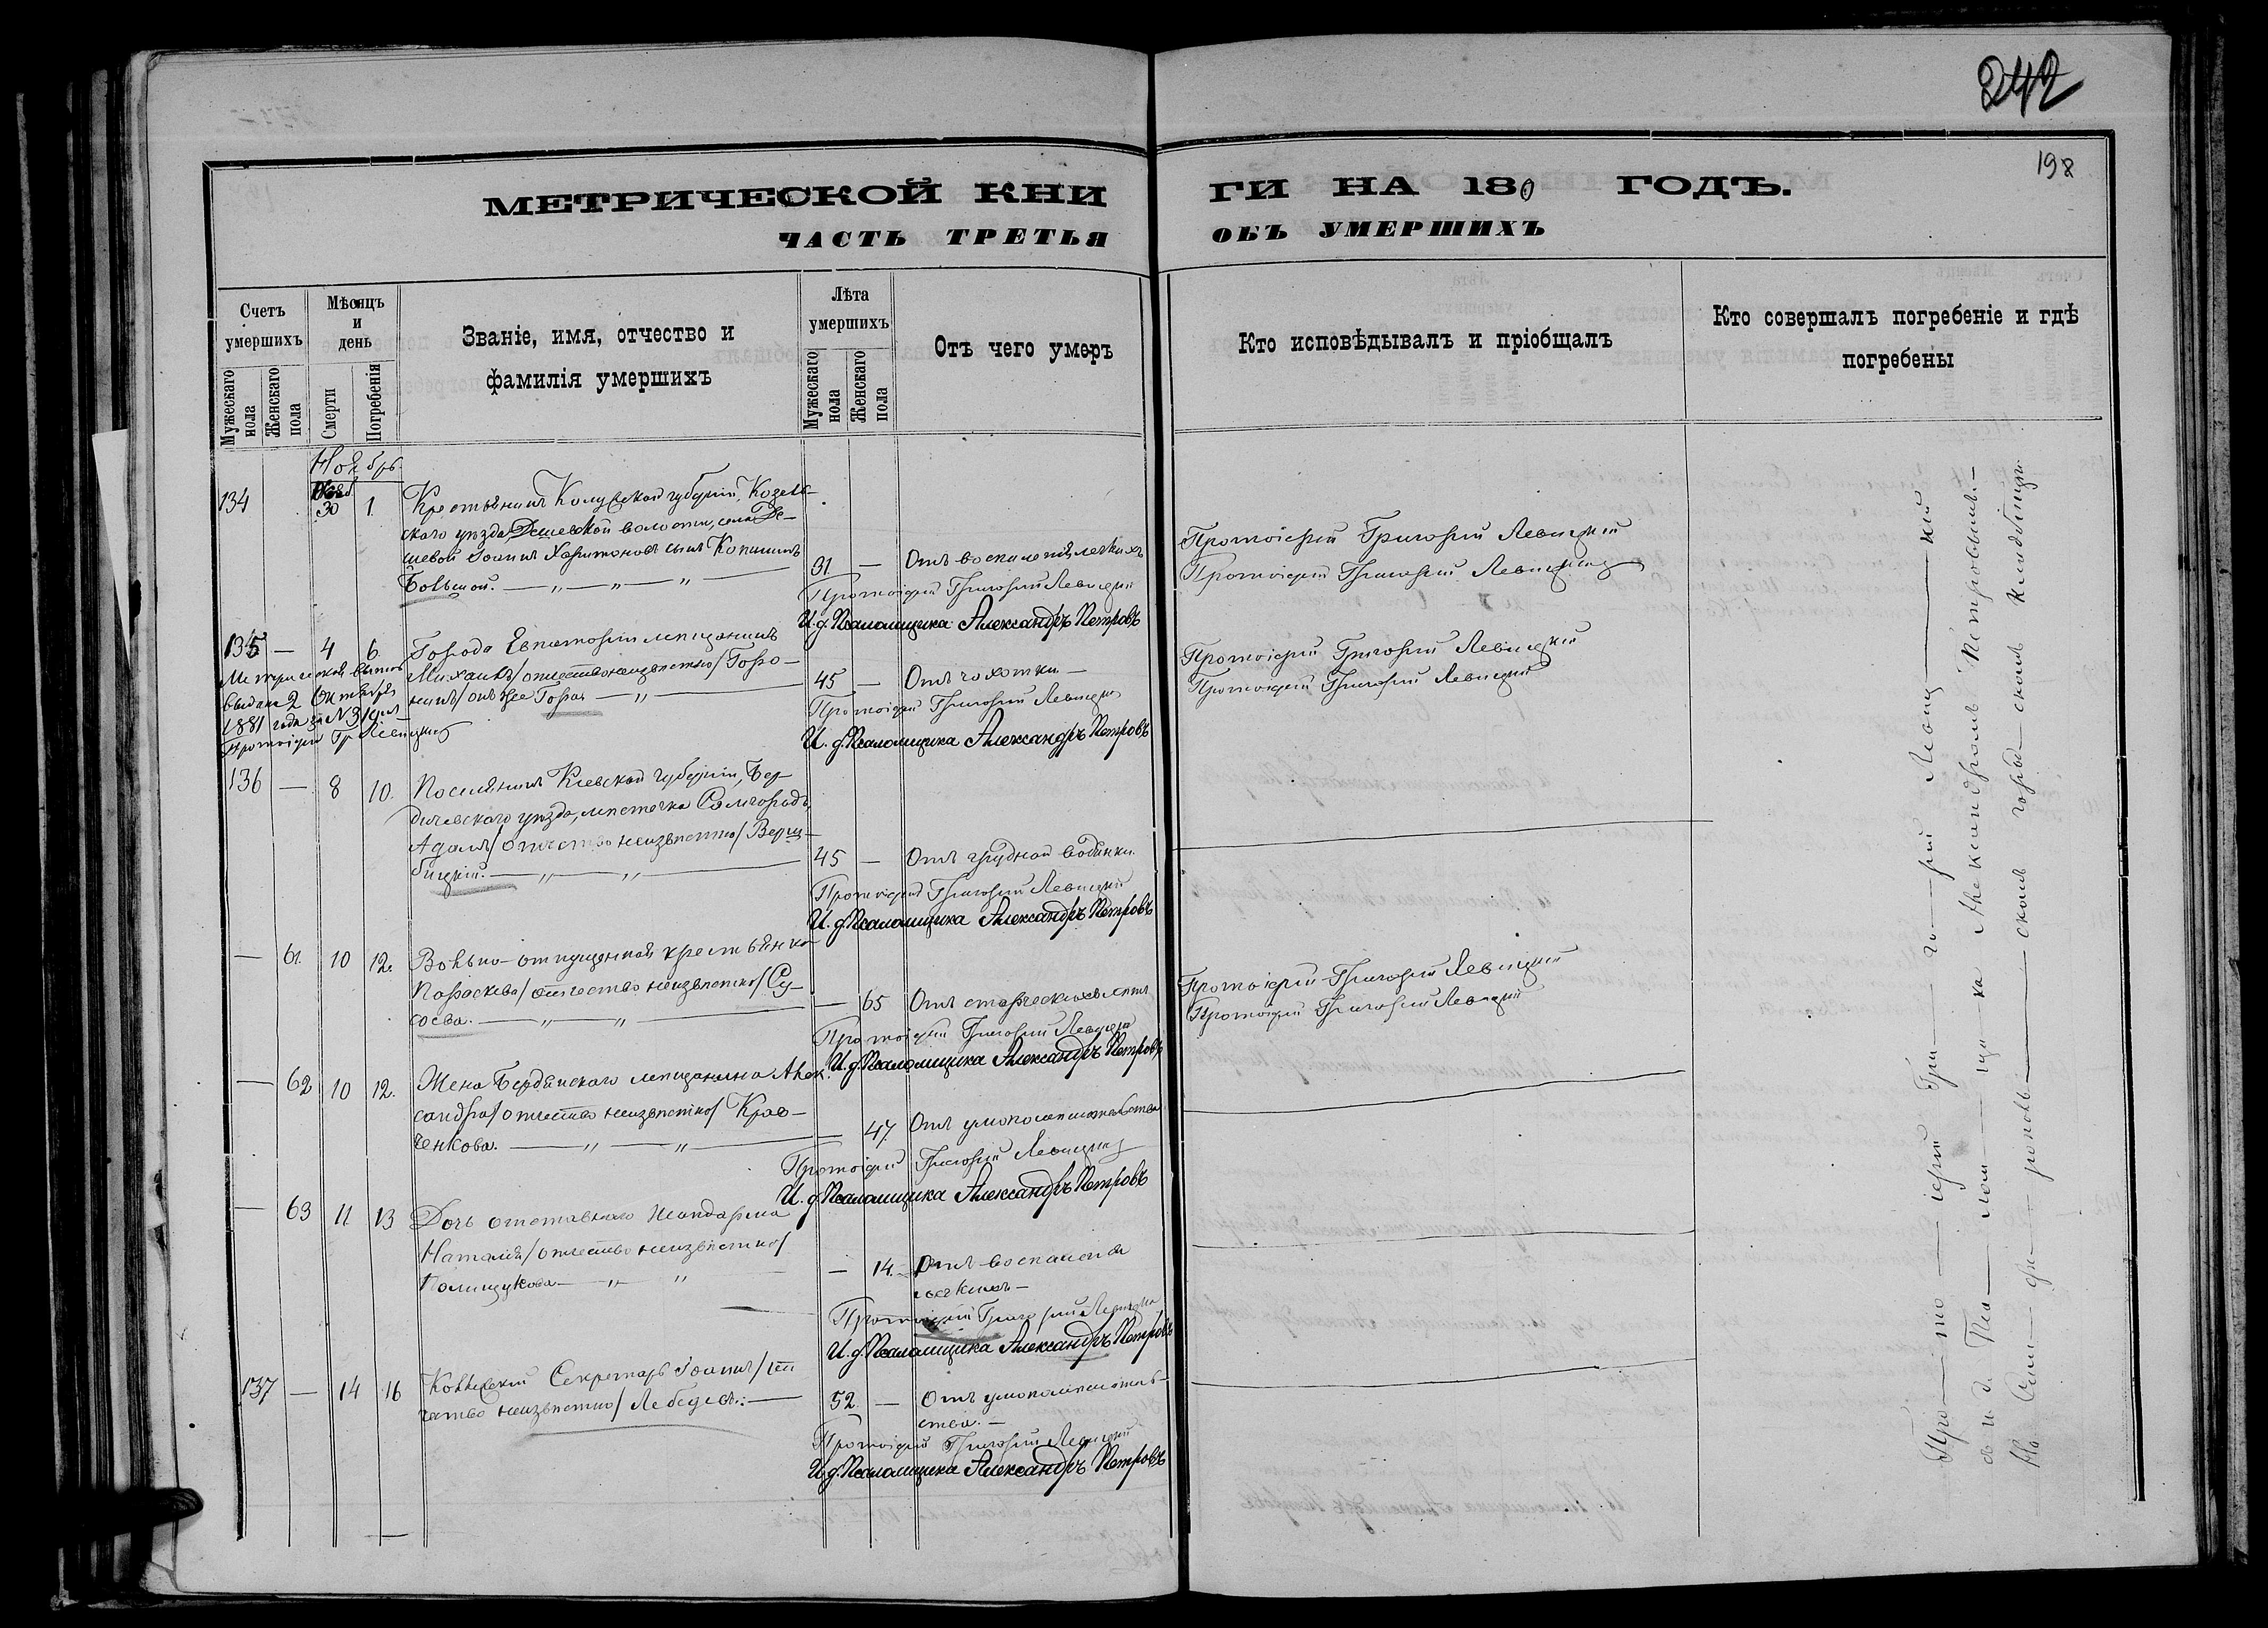 242
198
МЕТРИЧЕСКОЙ КНИГИ НА 180 ГОДЪ.
ЧАСТЬ ТРЕТЬЯ ОБЪ УМЕРШИХЪ
Счетъ умершихъ
Мужескаго пола
Женскаго пола
Мѣсяцъ и день
Смерти
Погребенія
Званіе, имя, отчество и
фамилія умершихъ
Лѣта умершихъ
Мужескаго пола
Женскаго пола
Отъ чего умеръ
Кто исповѣдывалъ и пріобщалъ
Кто совершалъ погребеніе и гдѣ
погребены
Ноябрь
134 30 1. Крестьянинъ Калужской губерніи, Козель-
скаго уѣзда, Дешевской волости, села Де-
шевой Іоаннъ Харитоновъ сынъ Копишинъ
Большой. — „ — „ — 91 — Отъ воспаленія легкихъ
Протоіерей Григорій Левицкій
И. д. Псаломщика Александръ Петровъ
Протоіерей Григорій Левицкій
Протоіерей Григорій Левицкій
135 — 4 6. Города Евпаторіи мѣщанинъ
Михаилъ /отчество неизвѣстно/ Горо-
нинъ/ онъ же Гора. — „ — 45 — Отъ чахотки. —
Протоіерей Григорій Левицкій
И. д. Псаломщика Александръ Петровъ
Протоіерей Григорій Левицкій
Протоіерей Григорій Левицкій
Метрическая выпись
выдана 2 Октября
1881 года за № 31
Протоіерей Гр Левицкій
136 — 8 10. Поселянинъ Кіевской губерніи, Бер-
дичевскаго уѣзда, мѣстечка Самгородъ,
Адамъ /отчество неизвѣстно/ Верц-
бицкій. — „ — „ — 45 — Отъ грудной водянки.
Протоіерей Григорій Левицкій
И. д. Псаломщика Александръ Петровъ
— 61. 10 12. Вольно-отпущенная крестьянка
Параскева /отчество неизвѣстно/ Су-
соева. — „ — „ — — 65 Отъ старческихъ лѣтъ
Протоіерей Григорій Левицкій
И. д. Псаломщика Александръ Петровъ
Протоіерей Григорій Левицкій
Протоіерей Григорій Левицкій
— 62 10 12. Жена Бердянскаго мѣщанина Алек-
сандра /отчество неизвѣстно/ Крав-
ченкова. — „ — „ — — 47 Отъ умопомѣшательства
Протоіерей Григорій Левицкій
И. д. Псаломщика Александръ Петровъ
— 63 11 13 Дочь отставнаго жандарма
Наталія /отчество неизвѣстно/
Полищукова — „ „ — 14. Отъ воспаленія
легкихъ —
Протоіерей Григорій Левицкій
И. д. Псаломщика Александръ Петровъ
137 — 14 16 Коллежскій Секретарь Іоаннъ /от
чество неизвѣстно/ Лебедевъ. — 52. — Отъ умопомѣшатель-
ства. —
Протоіерей Григорій Левицкій
И. д. Псаломщика Александръ Петровъ
Про — то — іерей Гри — го — рій Левиц — кій
съ и. д. Пса — лом — щи — ка Александромъ Петровымъ. —
На Сим — фе — рополь — скомъ город — скомъ кладбищѣ.